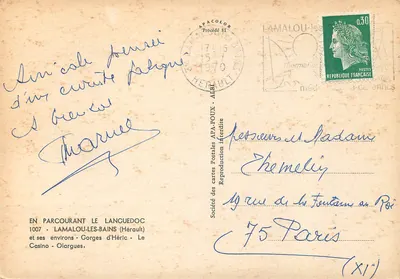 APACOLOR
Procédé EI
LAMALOU-
HERAULT
0,30
REPUBLIQUE FRANÇAISE
Amicale pensée
d'un curiste fatigué
A bientôt
Société des cartes Postales APA-POUX - ALBI
Reproduction Interdite
EN PARCOURANT LE LANGUEDOC
1007 - LAMALOU-LES-BAINS (Hérault)
et ses environs - Gorges d'Héric - Le
Casino - Olargues.
Messieurs et Madame
Themelin
19 rue de la Fontaine au Roi
75 Paris
(XI°)